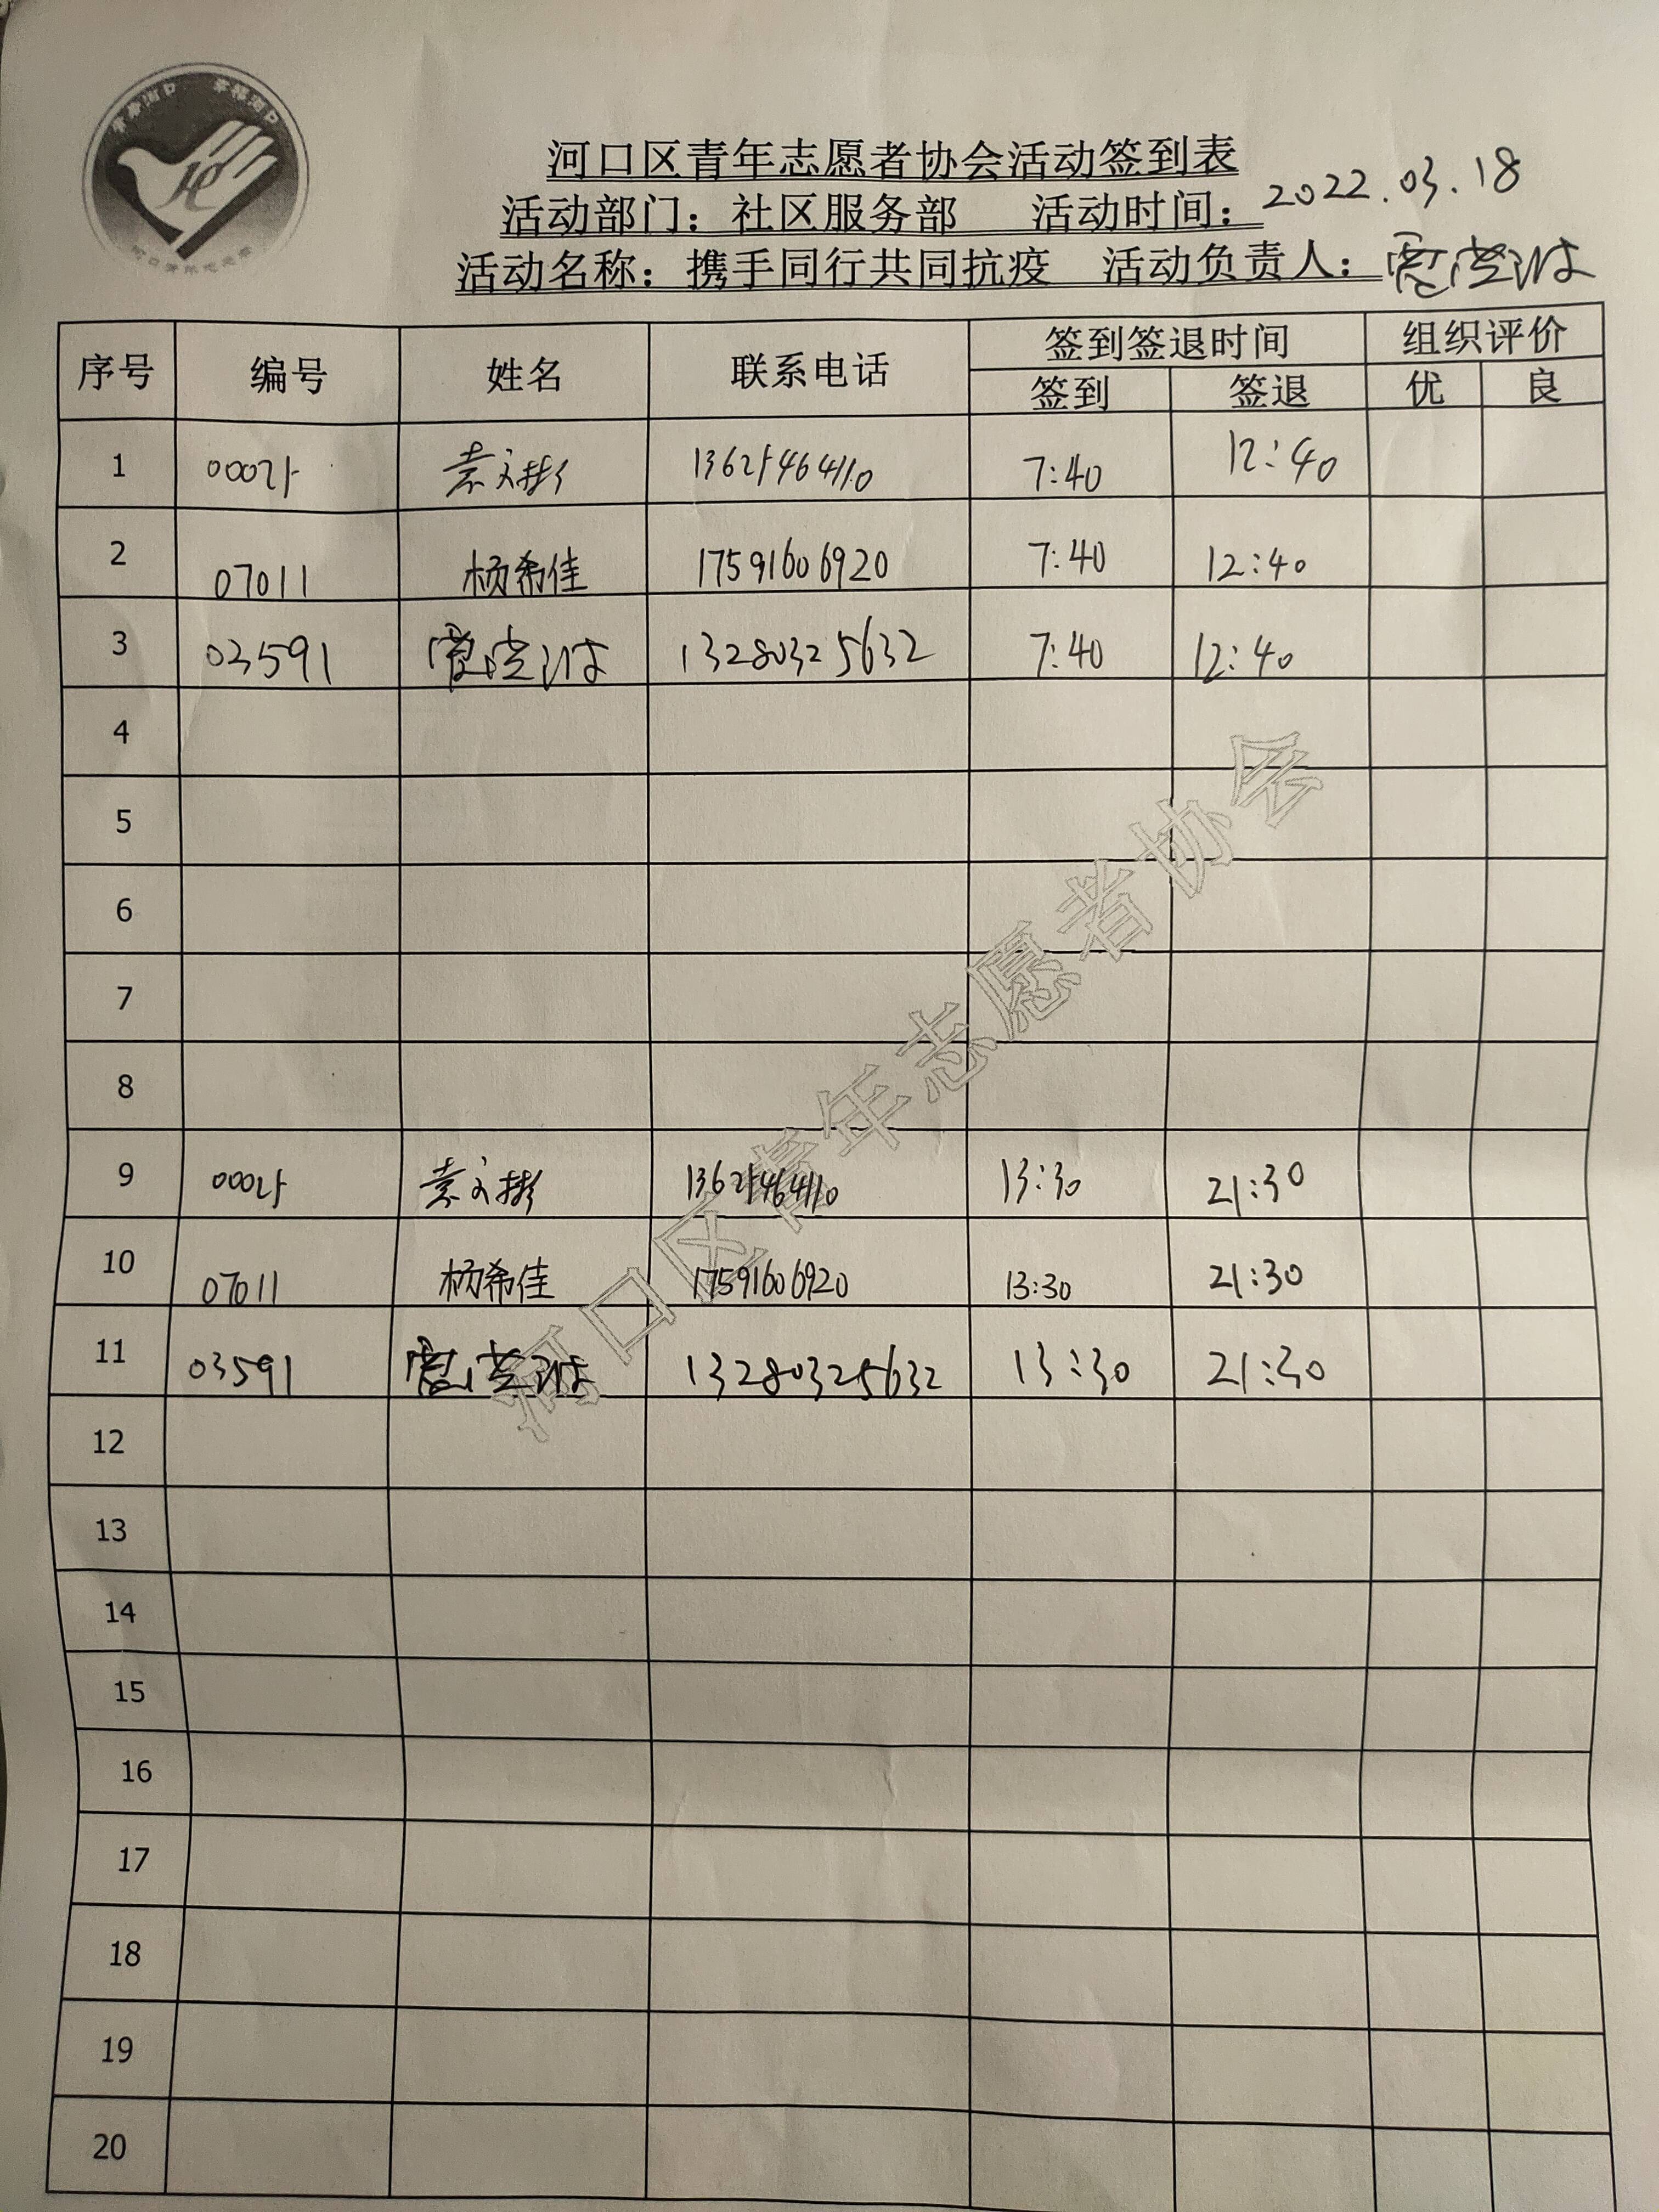 河口区青年志愿者协会活动签到表
活动部门：社区服务部 活动时间：2022.03.18
活动名称：携手同行共同抗疫 活动负责人：
序号 编号 姓名 联系电话 签到签退时间 组织评价
签到 签退 优 良
1 00025 袁文彬 13625464110 7:40 12:40
2 07011 杨希佳 17591606920 7:40 12:40
3 03591 13280325632 7:40 12:40
4
5
6
7
8
9 00025 袁文彬 13625464110 13:30 21:30
10 07011 杨希佳 17591606920 13:30 21:30
11 03591 13280325632 13:30 21:30
12
13
14
15
16
17
18
19
20
河口区青年志愿者协会